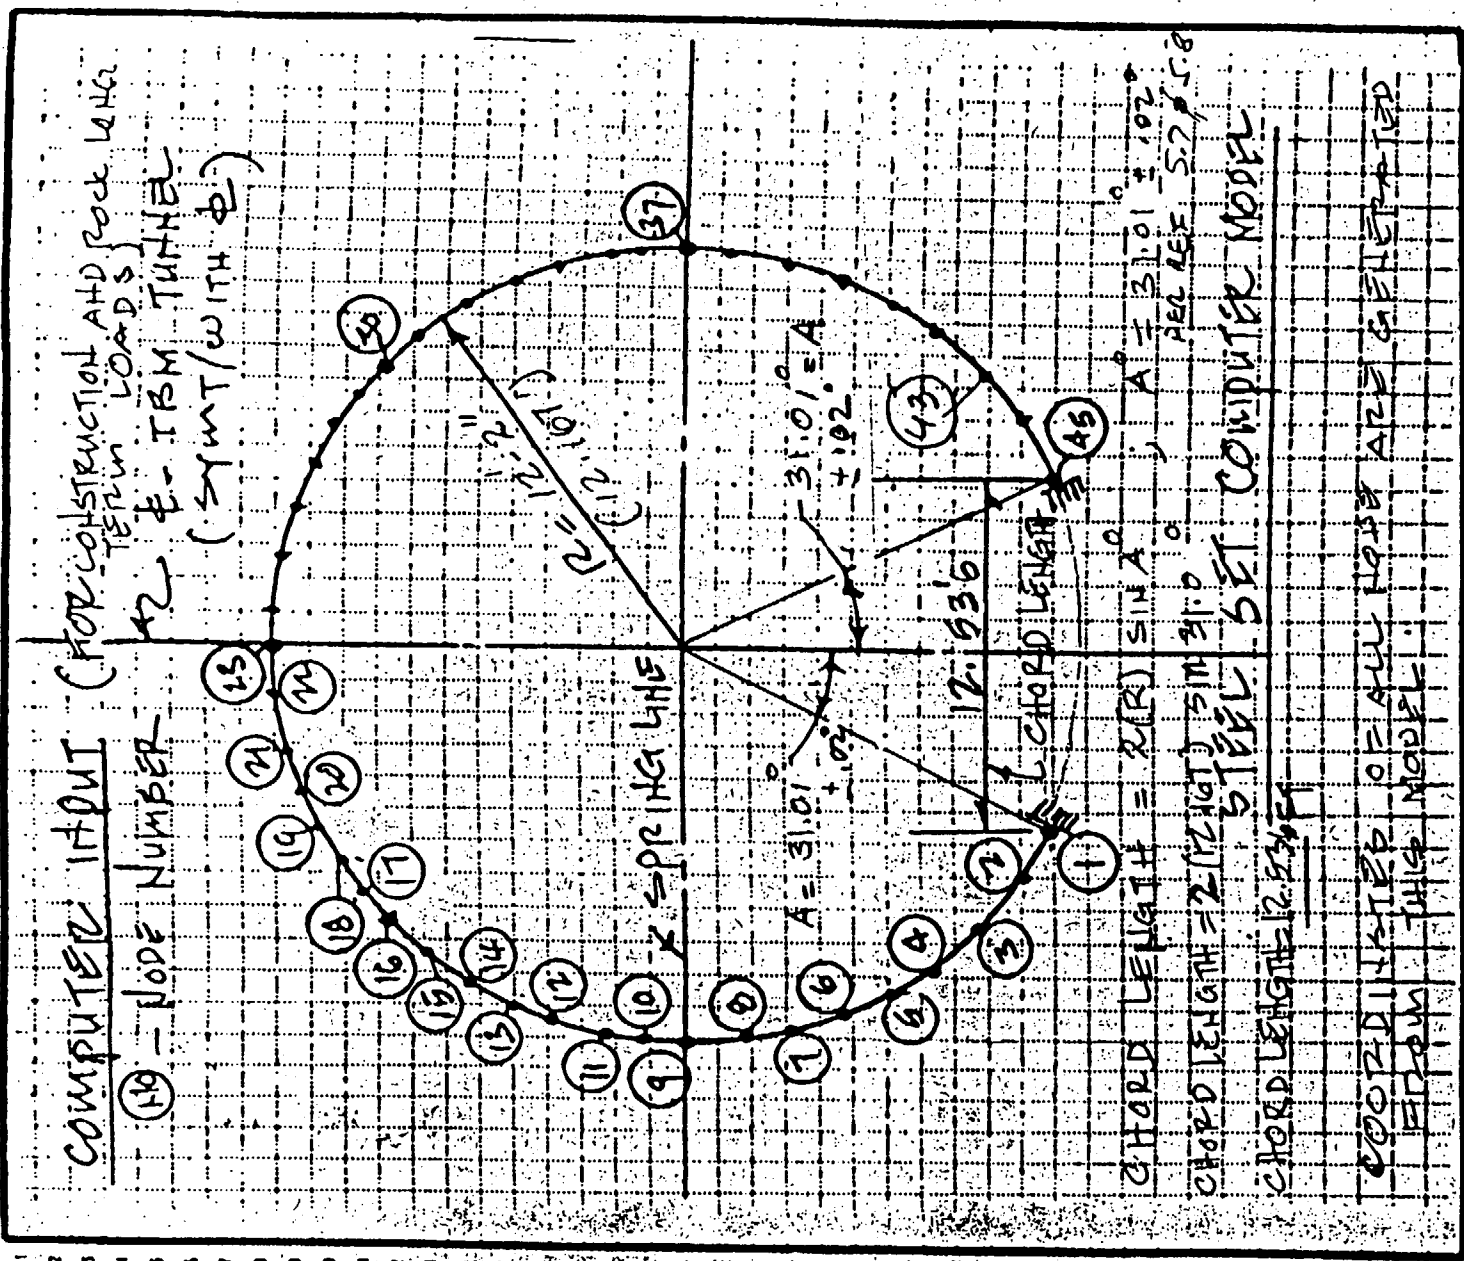 COMPUTER INPUT (FOR CONSTRUCTION AND ROCK LONG
TERM LOADS)
NO — NODE NUMBER
℄ - TBM TUNNEL
(SYMT/WITH ℄)
23
22
21
20
19
18
17
16
15
14
13
12
11
10
9
8
7
6
5
4
3
2
1
37
43
45
R = 12'.2"
(12.167')
SPRING LINE
A = 31.01° ± .02°
31.01° = A
± .02°
12.536'
CHORD LENGTH
CHORD LENGTH = 2(R) SIN A°, A° = 31.01° ± .02°
PER REF 5.7 5.8
CHORD LENGTH = 2(12.167) SIN 31.0°
CHORD LENGTH = 12.536 FT
STEEL SET COMPUTER MODEL
COORDINATES OF ALL NODE ARE GENERATED
FROM THIS MODEL.